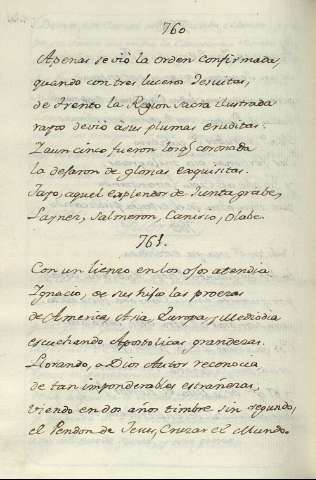 760
Apenas se vió la orden confirmada,
quando con tres luceros Jesuitas,
de Trento la Region sacra ilustrada
rasgos devió à sus plumas eruditas.
I aun cinco fueron los q̃ coronada
la dejaron de glorias exquisitas.
Jayo, aquel explendor de Junta grabe,
Laynez, Salmeron, Canisio, Olabe.
761.
Con un lienzo en los ojos atendia
Ignacio, de sus hijos las proezas
de America, Asia, Europa, y Mediodia
escuchando Apostolicas grandezas.
Llorando, a Dios Autor reconocia
de tan imponderables estrañezas,
viendo en dos años timbre sin segundo,
el Pendon de Jesus, Cruzar el Mundo.